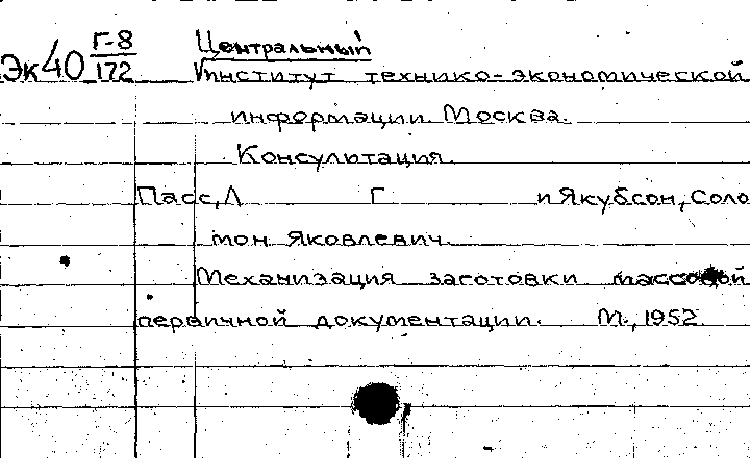 Эк40 Г-8/172 Центральный
Институт технико-экономической
информации. Москва.
Консультация.
Пасс, Л Г и Якубсон, Соло
мон Яковлевич.
Механизация заготовки массовой
первичной документации. М., 1952